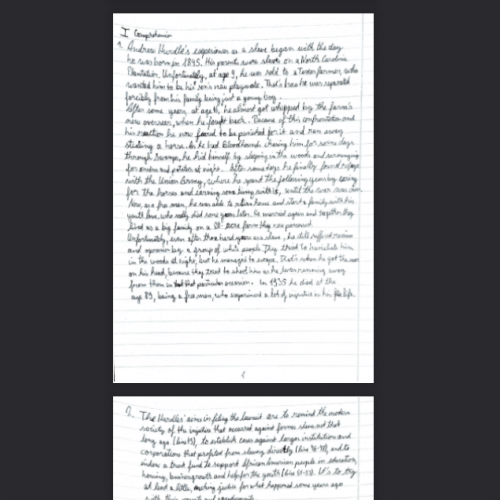 I Comprehension
1. Andrew Hurdle's experience as a slave began with the day
he was born in 1845. His parents were slaves on a North Carolina
Plantation. Unfortunately, at age 9, he was sold to a Texan farmer, who
wanted him to be his son's new playmate. That's how he was separated
forcibly from his family being just a young boy.
After some years, at age 16, he almost got whipped by the farm's
new overseer, when he fought back. Because of this confrontation and
his reaction he now feared to be punished for it and ran away
stealing a horse. He had Bloodhounds chasing him for some days
through swamps, he hid himself by sleeping in the woods and
for and at night. some days he finally found refuge
with the Union Army, where he spent the following years by caring
for the horses and serving with it, until the war was over.
Now, as a free man, he was able to return home and start a family with his
youth love, who sadly died some years later. He married again and together they
lived as a big family on a acre farm they now possessed.
Unfortunately, even after those hard years as a slave, he still suffered racism
and by a group of white people. They tried to him
in the woods at night, but he managed to escape. That's when he got the scar
on his head, because they tried to shoot him as he was running away
from them in that particular occasion. In 1935 he died at the
age 89, being a free man, who experienced a lot of injustice in his life.
2. The Hurdles' aims in filing the lawsuit are to remind the modern
society of the injustice that occurred against former slaves not that
long ago (line), to establish cases against larger institutions and
corporations that profited from slavery directly (line), and to
endow a trust fund to support African American people in education,
housing, businesses and help for the youth (line). It's to try
at least a little, making justice for what happened some years ago
with their parents and grandparents.